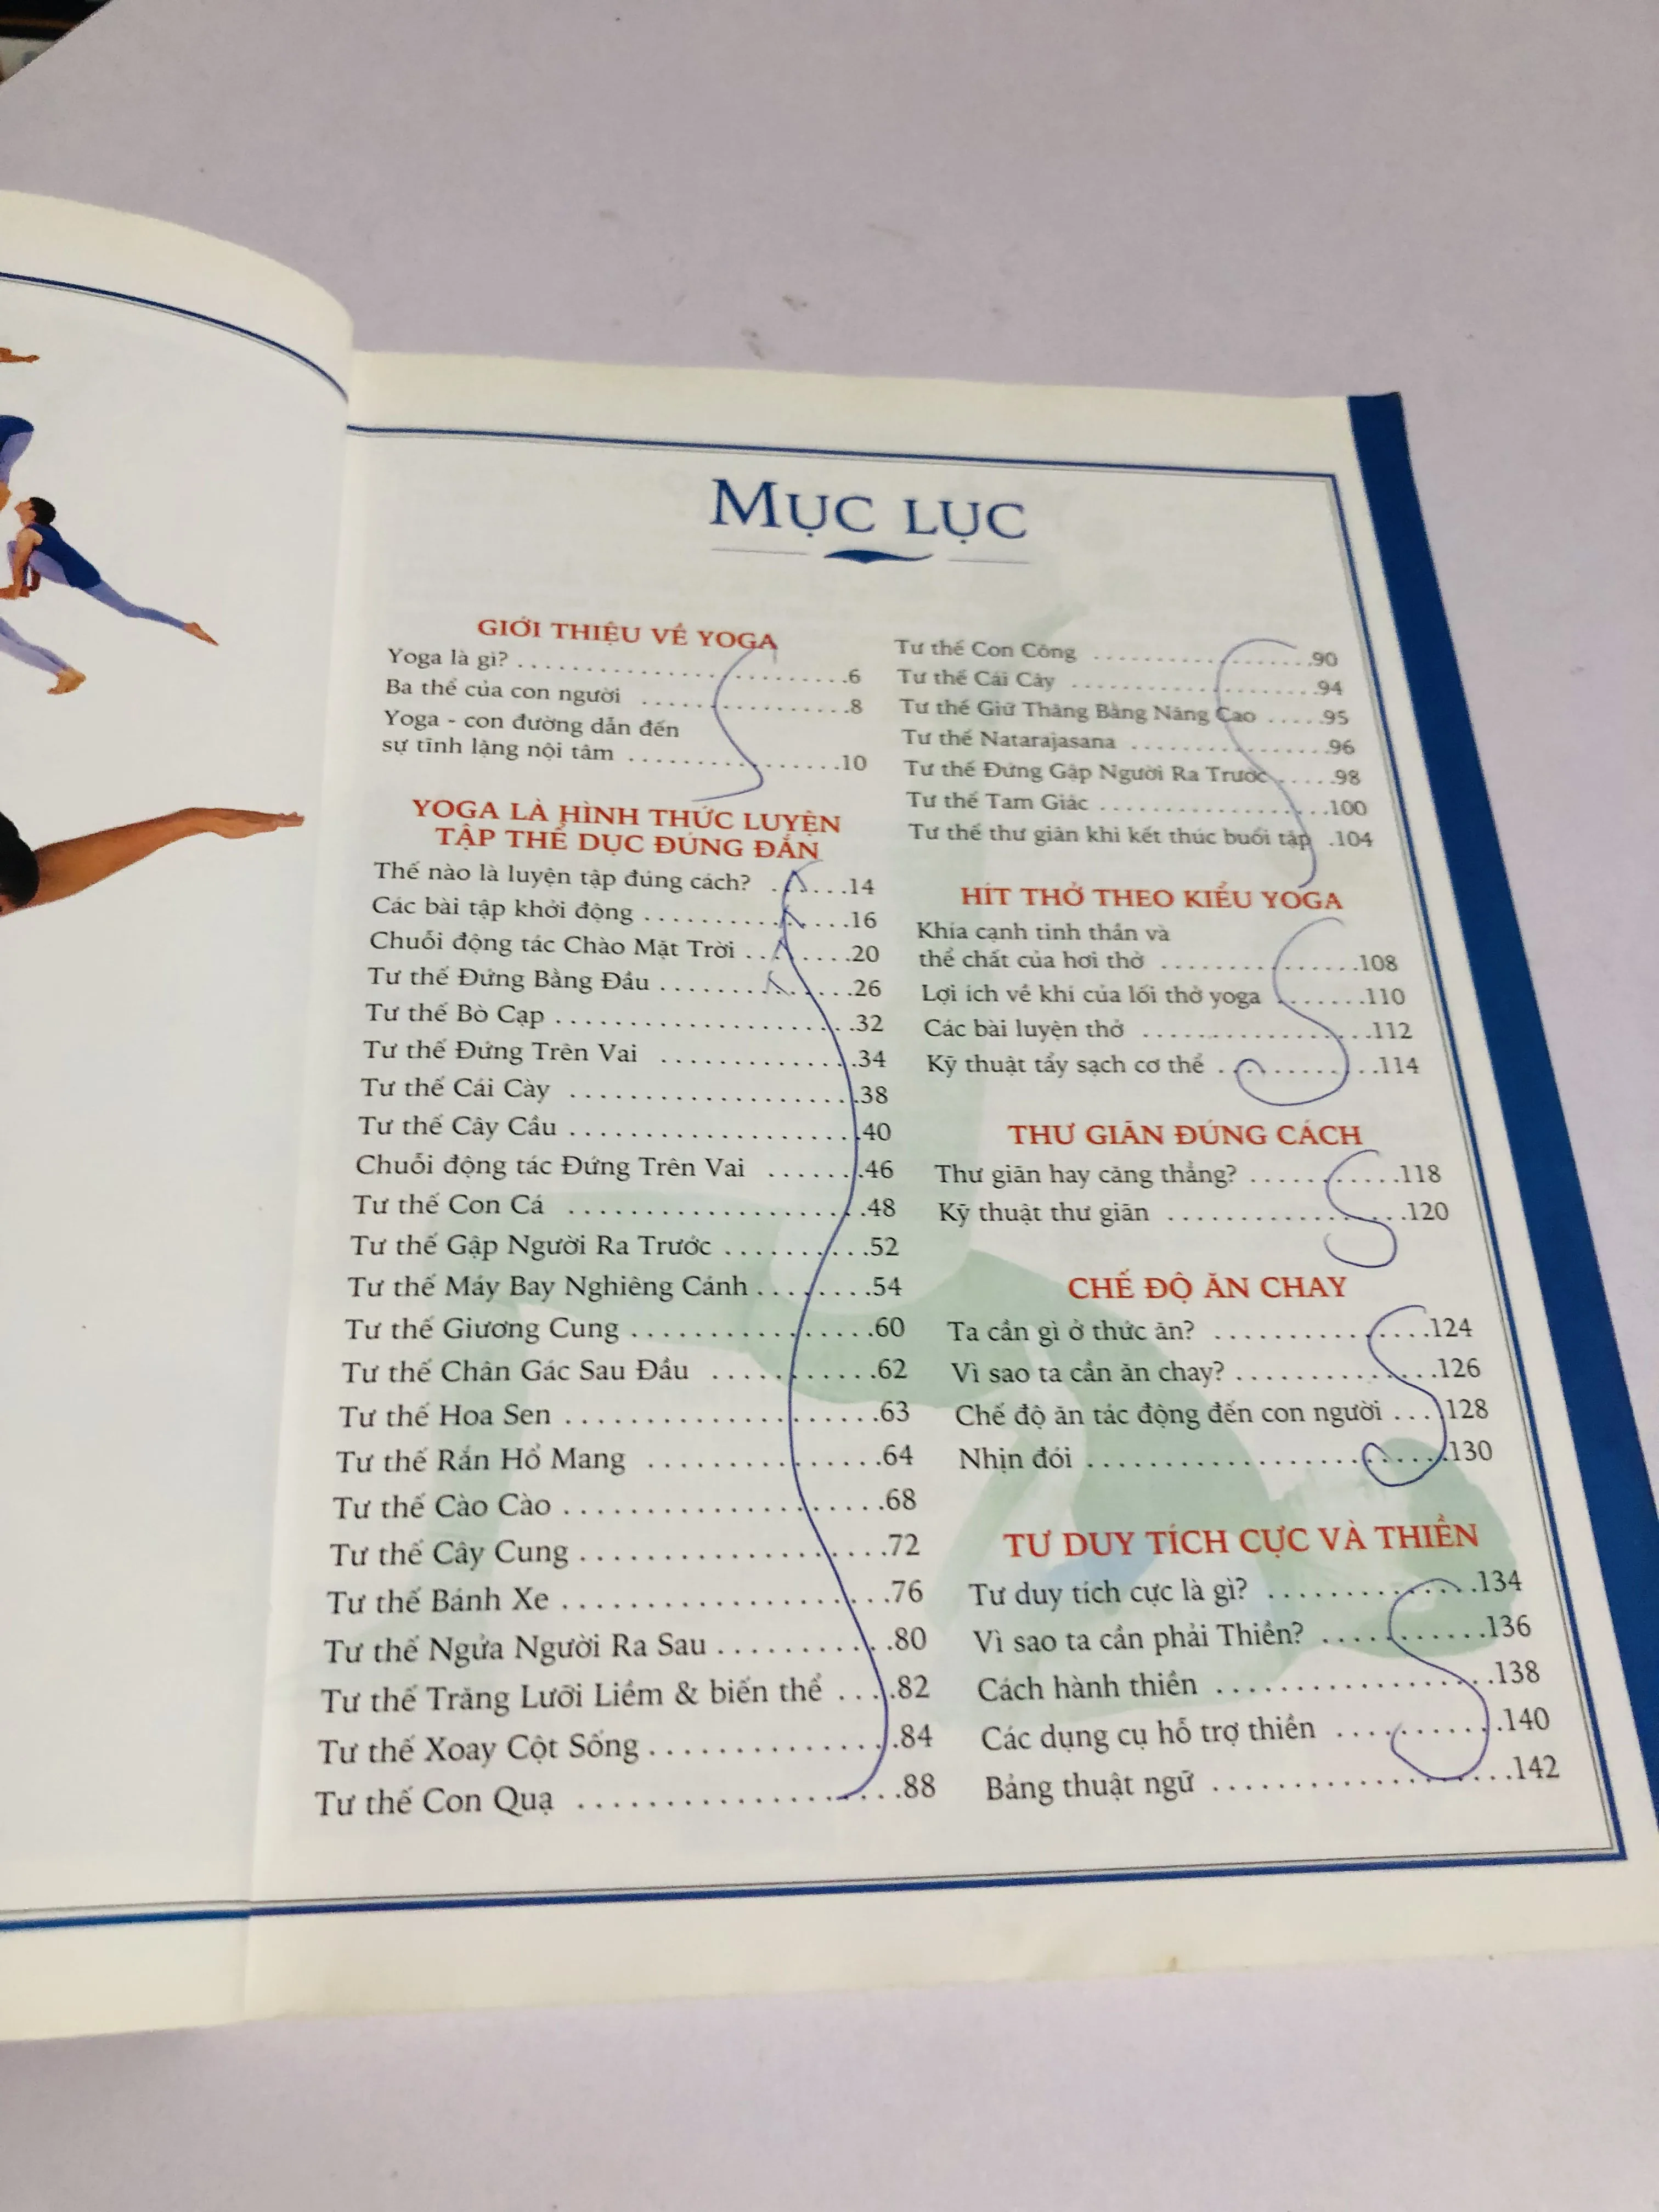 MỤC LỤC
GIỚI THIỆU VỀ YOGA
Yoga là gì? ........................6
Ba thể của con người ................8
Yoga - con đường dẫn đến
sự tĩnh lặng nội tâm ................10
YOGA LÀ HÌNH THỨC LUYỆN
TẬP THỂ DỤC ĐÚNG ĐẮN
Thế nào là luyện tập đúng cách? ......14
Các bài tập khởi động ...............16
Chuỗi động tác Chào Mặt Trời ........20
Tư thế Đứng Bằng Đầu ..............26
Tư thế Bò Cạp ......................32
Tư thế Đứng Trên Vai ...............34
Tư thế Cái Cày .....................38
Tư thế Cây Cầu .....................40
Chuỗi động tác Đứng Trên Vai .......46
Tư thế Con Cá .....................48
Tư thế Gập Người Ra Trước ...........52
Tư thế Máy Bay Nghiêng Cánh ........54
Tư thế Giương Cung .................60
Tư thế Chân Gác Sau Đầu ...........62
Tư thế Hoa Sen ......................63
Tư thế Rắn Hổ Mang ................64
Tư thế Cào Cào ......................68
Tư thế Cây Cung .....................72
Tư thế Bánh Xe ......................76
Tư thế Ngửa Người Ra Sau ............80
Tư thế Trăng Lưỡi Liềm & biến thể ....82
Tư thế Xoay Cột Sống ................84
Tư thế Con Quạ .....................88
Tư thế Con Công ...................90
Tư thế Cái Cây .....................94
Tư thế Giữ Thăng Bằng Nâng Cao .....95
Tư thế Natarajasana ................96
Tư thế Đứng Gập Người Ra Trước .....98
Tư thế Tam Giác ...................100
Tư thế thư giãn khi kết thúc buổi tập .104
HÍT THỞ THEO KIỂU YOGA
Khía cạnh tinh thần và
thể chất của hơi thở ................108
Lợi ích về khí của lối thở yoga .......110
Các bài luyện thở ..................112
Kỹ thuật tẩy sạch cơ thể ............114
THƯ GIÃN ĐÚNG CÁCH
Thư giãn hay căng thẳng? ...........118
Kỹ thuật thư giãn .................120
CHẾ ĐỘ ĂN CHAY
Ta cần gì ở thức ăn? ...............124
Vì sao ta cần ăn chay? ..............126
Chế độ ăn tác động đến con người ....128
Nhịn đói .........................130
TƯ DUY TÍCH CỰC VÀ THIỀN
Tư duy tích cực là gì? ..............134
Vì sao ta cần phải Thiền? ...........136
Cách hành thiền ...................138
Các dụng cụ hỗ trợ thiền ............140
Bảng thuật ngữ .....................142